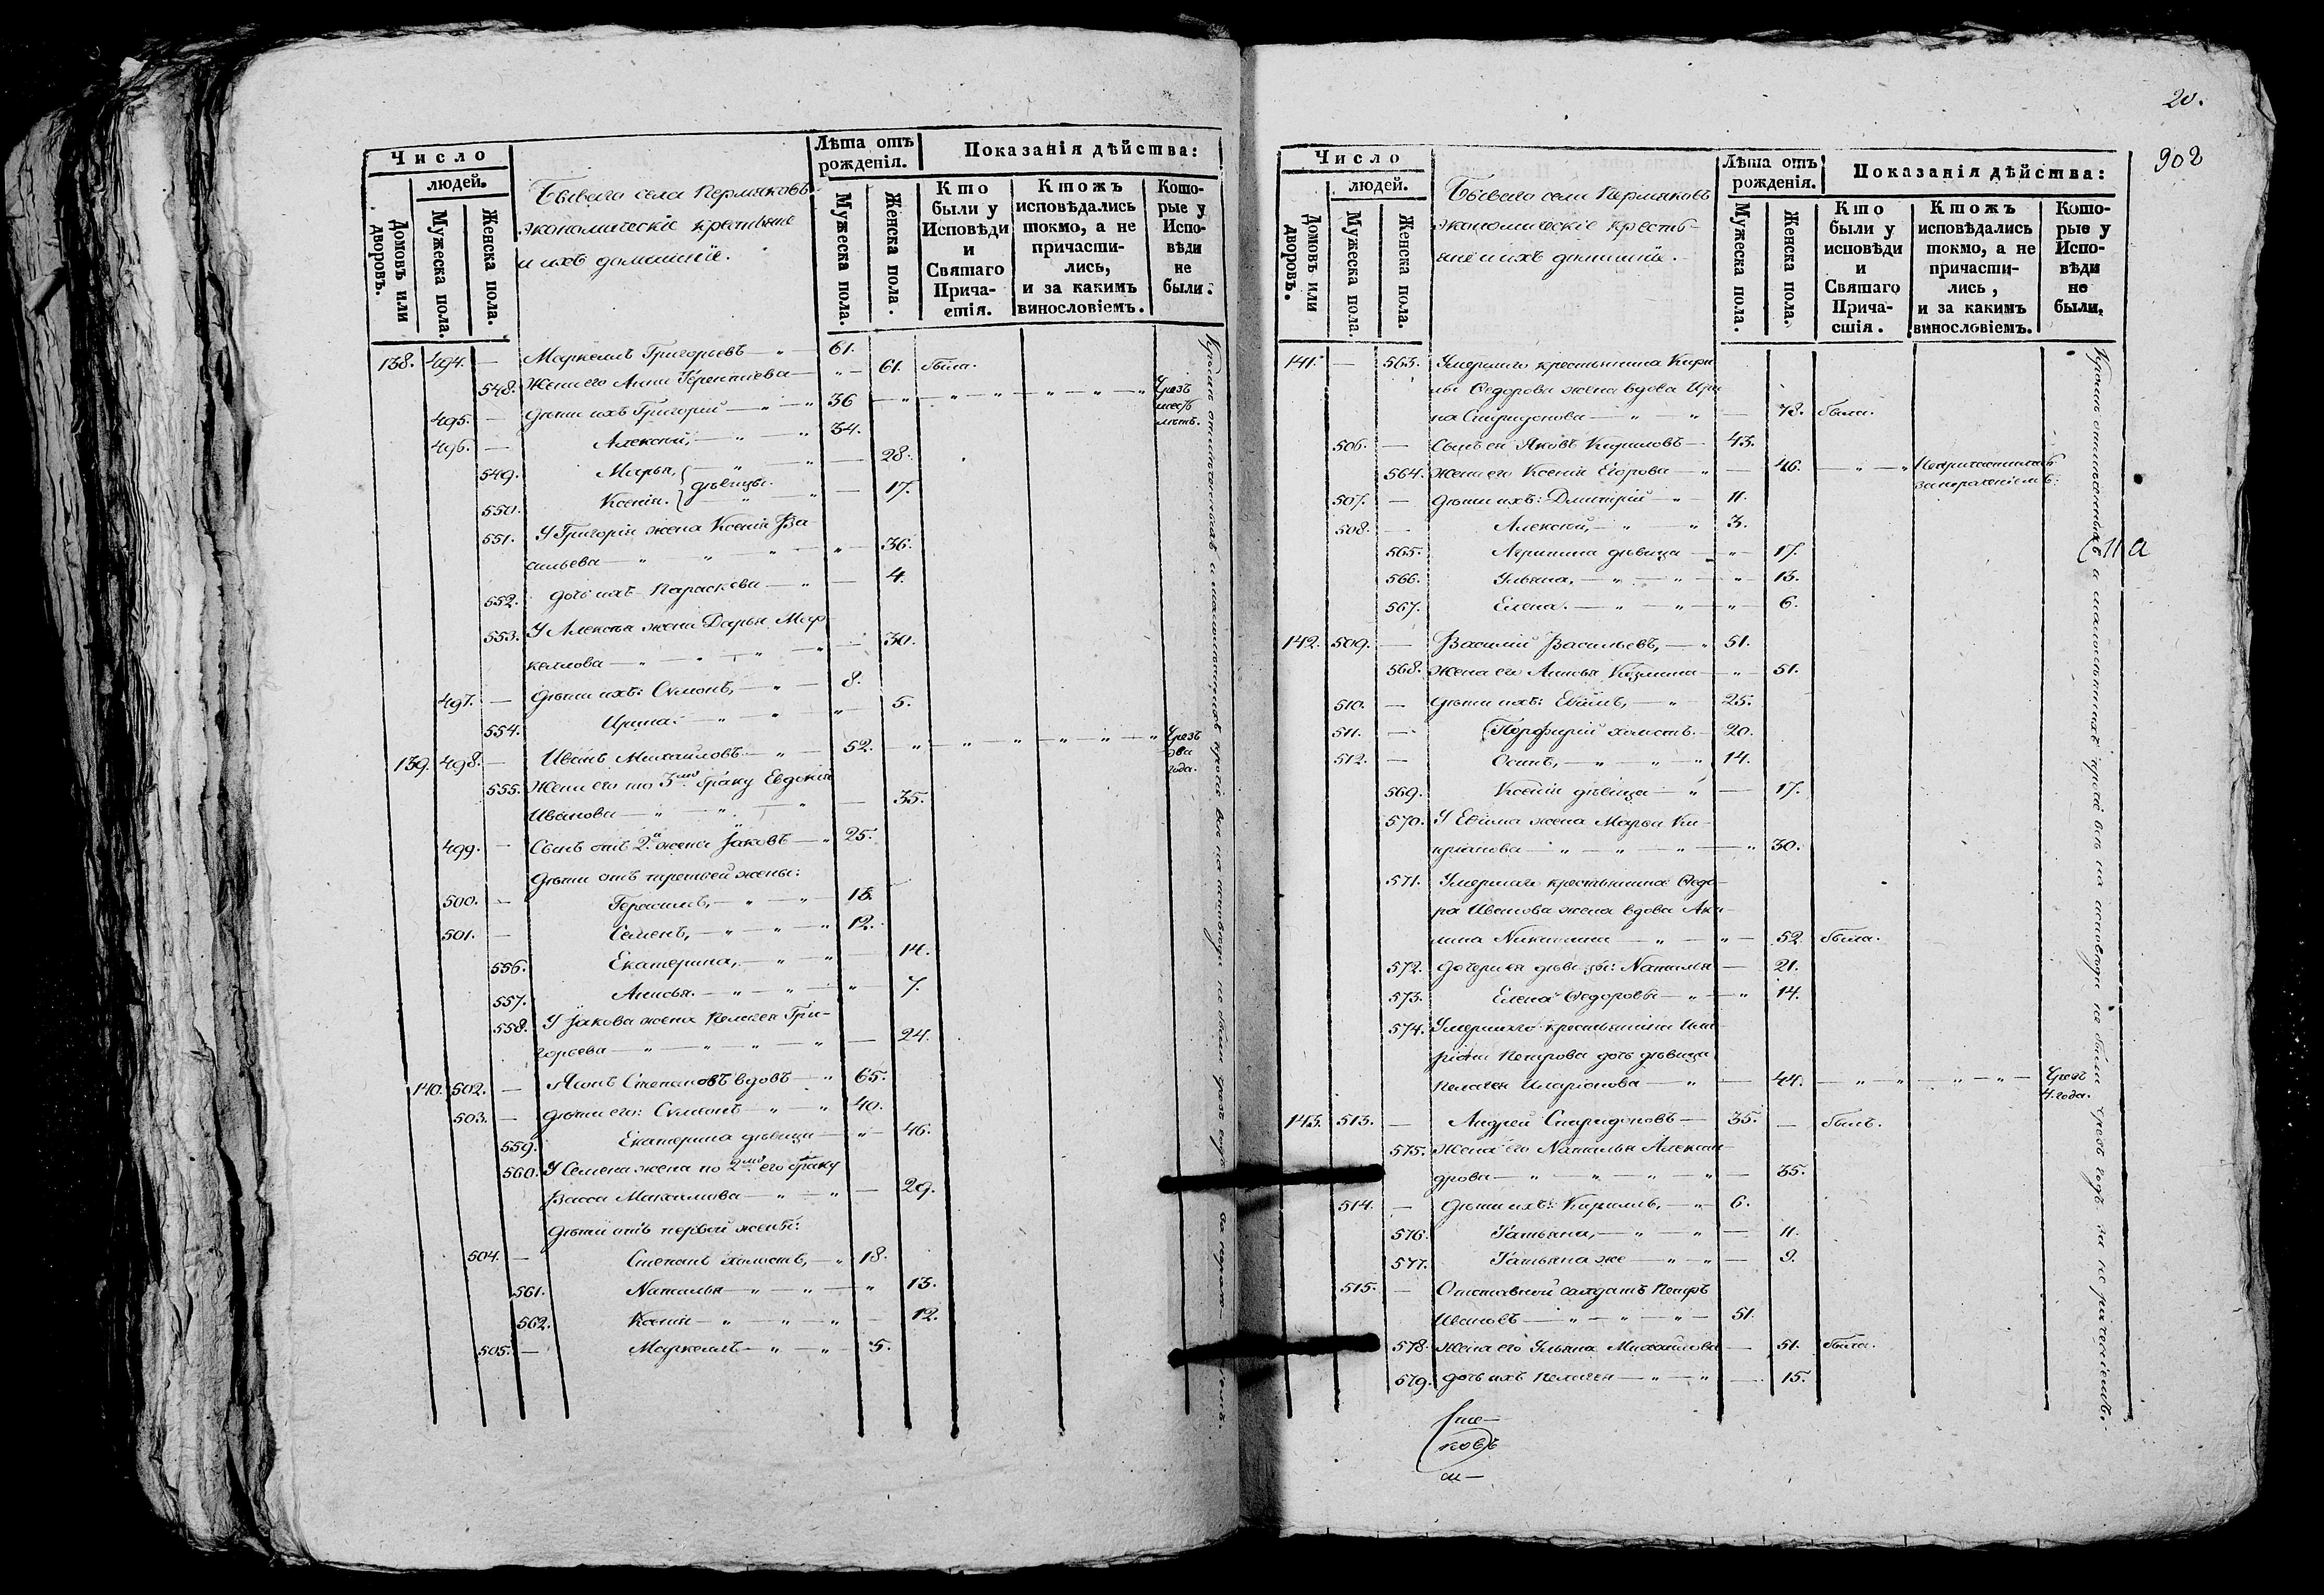 Число
людей.
Домовъ или дворовъ.
Мужеска пола.
Женска пола.
Бывшаго села Пермяковъ
экономическіе крестьяне
и ихъ домашніе.
Лѣта отъ
рожденія.
Мужеска пола.
Женска пола.
Показанія дѣйства:
Кто
были у
Исповѣди
и
Святаго
Прича-
стія.
Ктожъ
исповѣдались
токмо, а не
причасти-
лись,
и за какимъ
винословіемъ.
Кото-
рые у
Испо-
вѣди
не
были.
138. 494. — Маркеллъ Григорьевъ — 61.
548. Жена его Анна Терентіева — 61. была.
495. — Дѣти ихъ Григорій — 36 Чрезъ
шесть
лѣтъ.
496. — Алексѣй, — 34.
549. Марья, — 28.
дѣвицы.
550. Ксенія. — 17.
551. У Григорія жена Ксенія Ва
сильева — 36.
552. дочь ихъ Параскева — 4.
553. У Алексѣя жена Дарья Мар
келлова — 30.
497. — Дѣти ихъ: Сѵмеонъ, — 8.
554. Ирина. — 5.
139. 498. — Иванъ Михайловъ — 52. Чрезъ
два
года.
555. Жена его по 3му браку Евдокія
Иванова — 35.
499. — Сынъ отъ 2й жены Іаковъ — 25.
Дѣти отъ третьей жены:
500. — Герасимъ, — 18.
501. — Семенъ, — 12.
556. Екатерина, — 14.
557. Анисья. — 7.
558. У Іакова жена Пелагея Гри-
горьева — 24.
140. 502. — Яковъ Степановъ вдовъ — 65.
503. — Дѣти его: Сѵмеонъ — 40.
559. Екатерина дѣвица — 46.
560. У Семена жена по 2му его браку
Васса Максимова — 29.
Дѣти отъ первой жены:
504. — Степанъ холостъ, — 18.
561. Наталья — 13.
562. Ксенія — 12.
505. — Маркеллъ — 5.
20.
902
Число
людей.
Домовъ или дворовъ.
Мужеска пола.
Женска пола.
Бывшаго села Пермяковъ
экономическіе кресть-
яне и ихъ домашніе.
Лѣта отъ
рожденія.
Мужеска пола.
Женска пола.
Показанія дѣйства:
Кто
были у
исповѣди
и
Святаго
Прича-
стія.
Ктожъ
исповѣдались
токмо, а не
причасти-
лись,
и за какимъ
винословіемъ.
Кото-
рые у
Испо-
вѣди
не
были.
141. — 563. Умершаго крестьянина Кири
лы Ѳедорова жена вдова Ири
на Спиридонова — 78. была.
506. — Сынъ ея Яковъ Кириловъ — 43.
564. Жена его Ксенія Егорова — 46.
507. — Дѣти ихъ: Дмитрій — 11.
508. — Алексѣй, — 3.
565. Агрипина дѣвица — 17.
11 а
566. Ульяна. — 13.
567. Елена. — 6.
142. 509. — Василій Васильевъ, — 51.
568. Жена его Анисья Козмина — 51.
510. — Дѣти ихъ: Евѳимъ, — 25.
511. — Порфирій холостъ. — 20.
512. — Осипъ, — 14.
569. Ксенія дѣвица — 17.
570. У Евѳима жена Марья Ки-
пріанова — 30.
571. Умершаго крестьянина Ѳедо-
ра Иванова жена вдова Аку-
лина Никитина — 52. была.
572. Дочери ея дѣвицы: Наталья — 21.
573. Елена Ѳедоровы — 14.
574. Умершаго крестьянина Ила-
ріона Петрова дочь дѣвица
Пелагея Иларіонова — 44. Чрезъ
4. года.
143. 513. — Андрей Спиридоновъ — 35. — былъ.
575. Жена его Наталья Алексан
дрова — 35.
514. — Дѣти ихъ: Кириллъ, — 6.
576. Татьяна, — 11.
577. Татьяна же — 9.
515. — Отставной салдатъ Петръ
Ивановъ — 51.
578. Жена его Ульяна Михайлова — 51. была.
579. дочь ихъ Пелагея — 15.